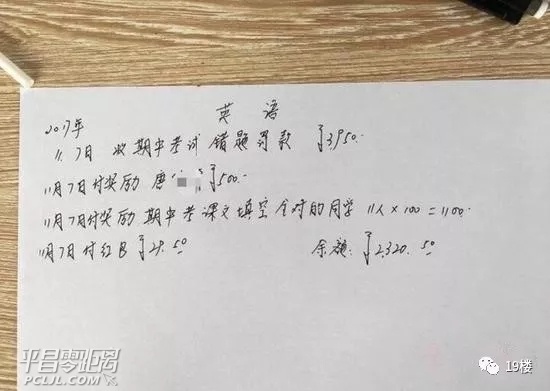 英语
2017年
11.7日 收期中考试错题罚款 ¥3950.
11月7日付奖励 唐 ¥500.
11月7日付奖励 期中考课文填空全对的同学 11人×100=1100.
11月7日付红包 ¥29.50 余额: ¥2320.50
平昌零距离
PCLJL.COM
19楼